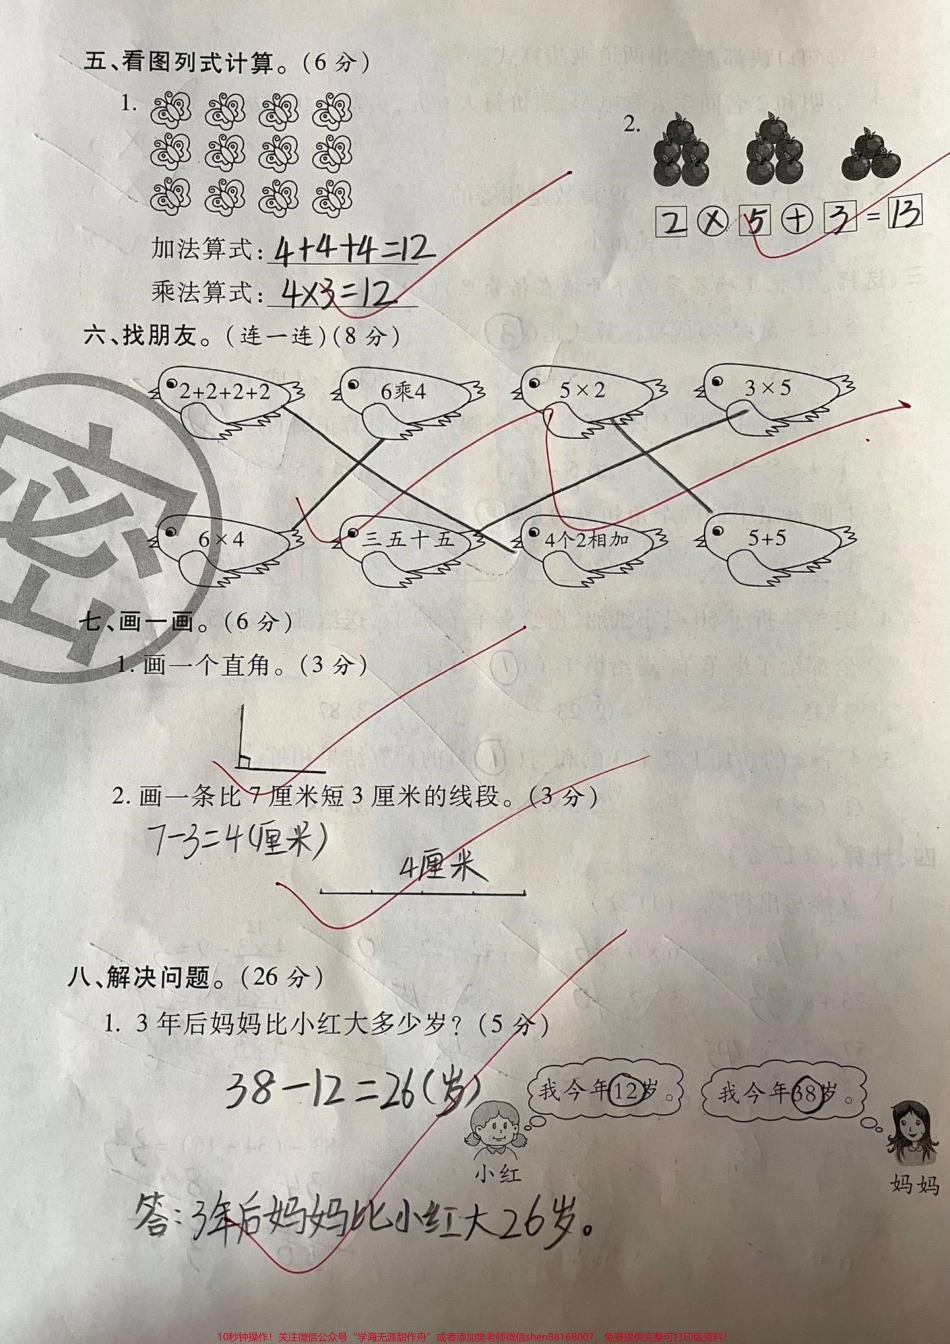 五、看图列式计算。(6分)
1.
2.
2 × 5 + 3 = 13
加法算式:4+4+4=12
乘法算式:4×3=12
六、找朋友。(连一连)(8分)
2+2+2+2 6乘4 5×2 3×5
6×4 三五十五 4个2相加 5+5
密
七、画一画。(6分)
1.画一个直角。(3分)
2.画一条比7厘米短3厘米的线段。(3分)
7-3=4(厘米)
4厘米
八、解决问题。(26分)
1. 3年后妈妈比小红大多少岁?(5分)
38-12=26(岁)
我今年12岁。 我今年38岁。
小红
妈妈
答:3年后妈妈比小红大26岁。
10秒钟操作!关注微信公众号“学海无涯甜作舟”或者添加樊老师微信shen88168007,免费提供完整可打印版资料!